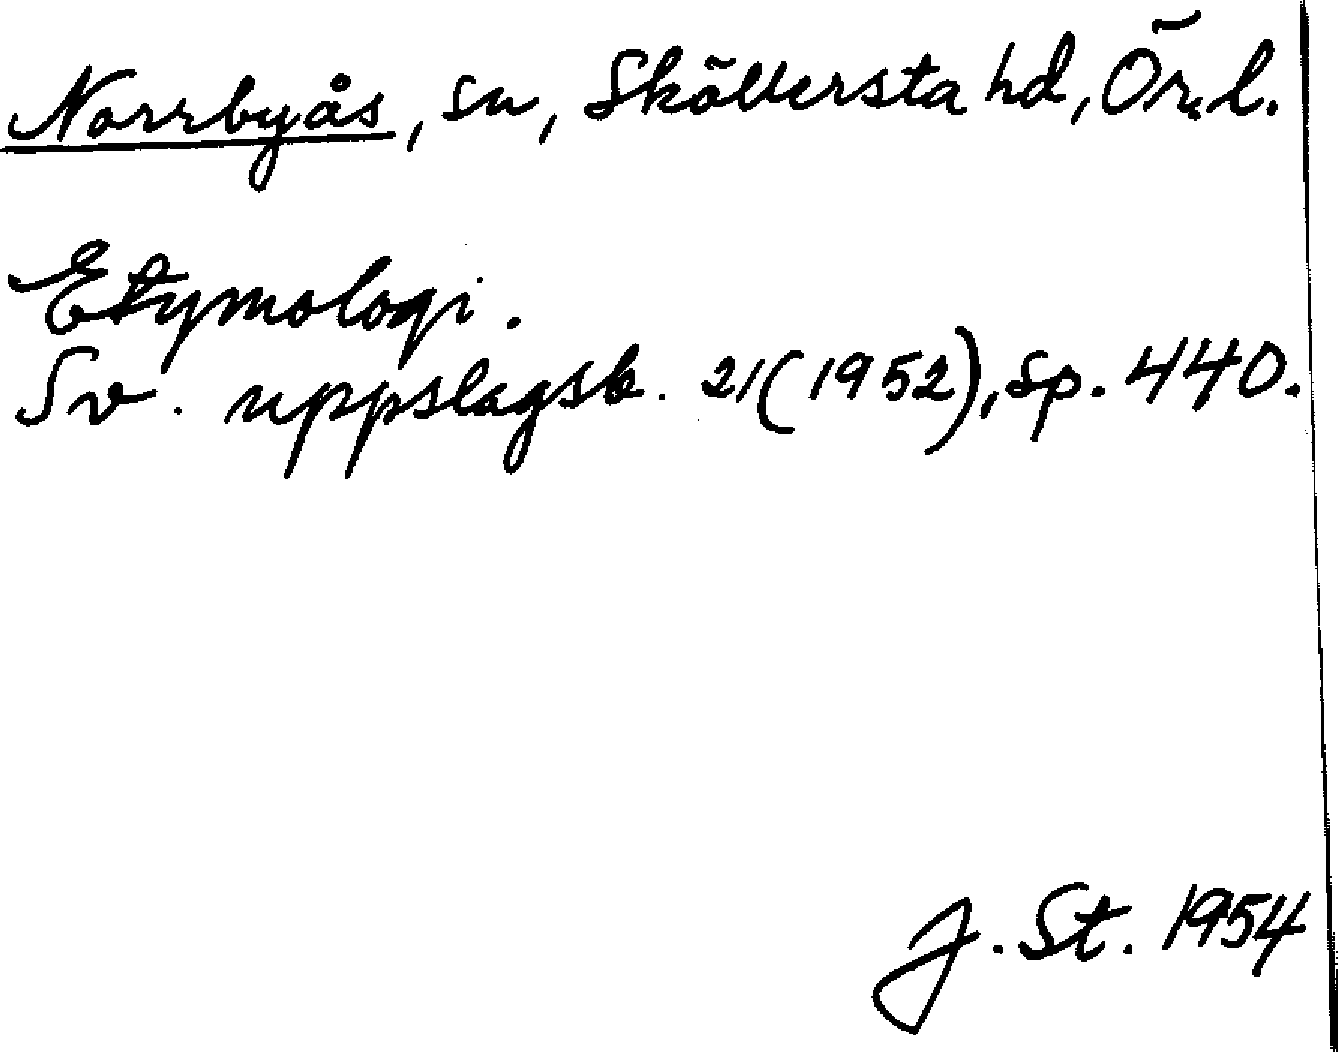 Norrbyås, sn, Sköllersta hd, Ör. l.
Etymologi.
Sv. uppslagsb. 21(1952), sp. 440.
J. St. 1954